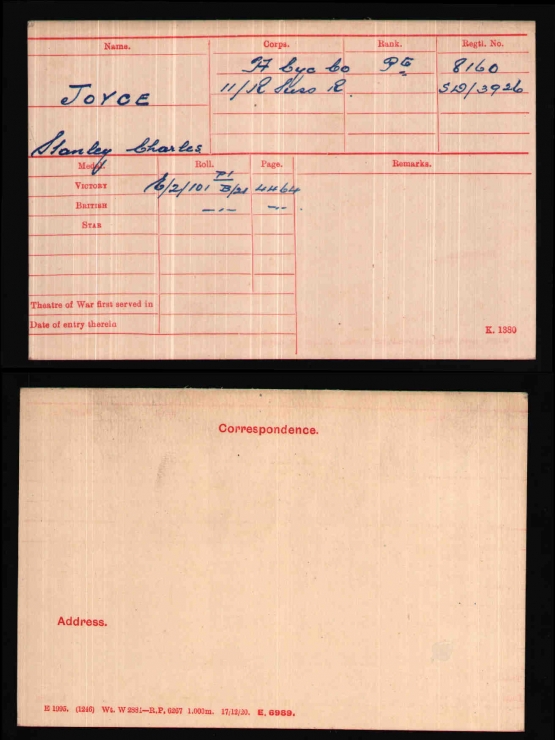 Name. Corps. Rank. Regtl. No.
Cyc Co Pte 8160
JOYCE 11/R Suss R. SD/3926
Stanley Charles
Medal. Roll. Page. Remarks.
VICTORY /2/101 P1 B/21 4464
BRITISH —"— —"—
STAR
Theatre of War first served in
Date of entry therein
K. 1380
Correspondence.
Address.
E 1095. (1246) Wt. W 2881—R.P. 6267 1,000m. 17/12/20. E. 6989.